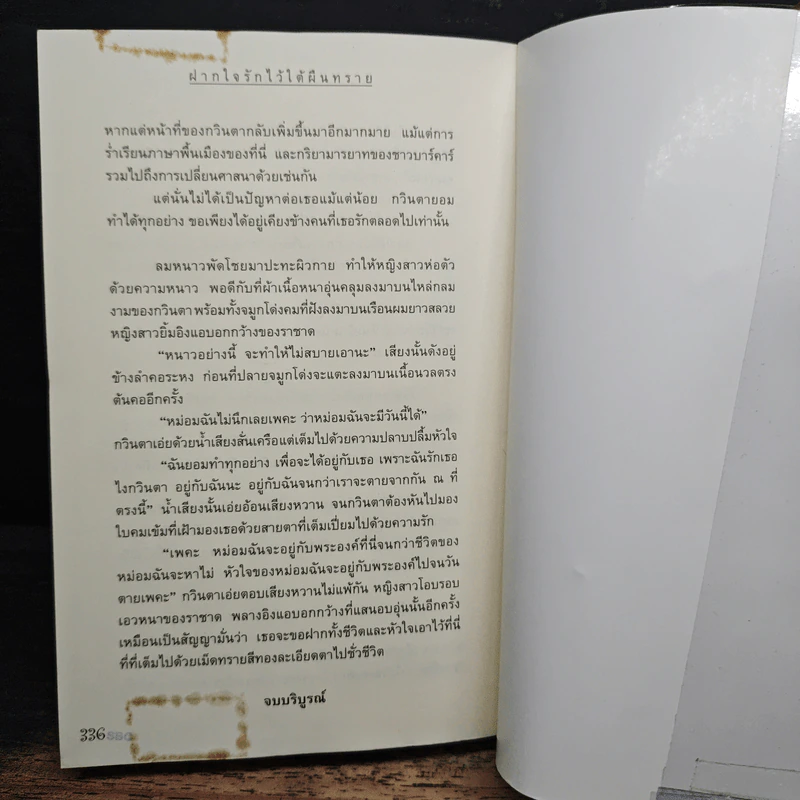 ฝากใจรักไว้ใต้ผืนทราย
หากแต่หน้าที่ของกวินตากลับเพิ่มขึ้นมาอีกมากมาย แม้แต่การ
ร่ำเรียนภาษาพื้นเมืองของที่นี่ และกริยามารยาทของชาวบาร์คาร์
รวมไปถึงการเปลี่ยนศาสนาด้วยเช่นกัน
แต่นั่นไม่ได้เป็นปัญหาต่อเธอแม้แต่น้อย กวินตายอม
ทำได้ทุกอย่าง ขอเพียงได้อยู่เคียงข้างคนที่เธอรักตลอดไปเท่านั้น
ลมหนาวพัดโชยมาปะทะผิวกาย ทำให้หญิงสาวห่อตัว
ด้วยความหนาว พอดีกับที่ผ้าเนื้อหนาอุ่นคลุมลงมาบนไหล่กลม
งามของกวินตา พร้อมทั้งจมูกโด่งคมที่ฝังลงมาบนเรือนผมยาวสลวย
หญิงสาวยิ้มอิงแอบอกกว้างของราชาด
“หนาวอย่างนี้ จะทำให้ไม่สบายเอานะ” เสียงนั้นดังอยู่
ข้างลำคอระหง ก่อนที่ปลายจมูกโด่งจะแตะลงมาบนเนื้อนวลตรง
ต้นคออีกครั้ง
“หม่อมฉันไม่นึกเลยเพคะ ว่าหม่อมฉันจะมีวันนี้ได้”
กวินตาเอ่ยด้วยน้ำเสียงสั่นเครือแต่เต็มไปด้วยความปลาบปลื้มหัวใจ
“ฉันยอมทำทุกอย่าง เพื่อจะได้อยู่กับเธอ เพราะฉันรักเธอ
ไงกวินตา อยู่กับฉันนะ อยู่กับฉันจนกว่าเราจะตายจากกัน ณ ที่
ตรงนี้” น้ำเสียงนั้นเอ่ยอ้อนเสียงหวาน จนกวินตาต้องหันไปมอง
ใบคมเข้มที่เฝ้ามองเธอด้วยสายตาที่เต็มเปี่ยมไปด้วยความรัก
“เพคะ หม่อมฉันจะอยู่กับพระองค์ที่นี่จนกว่าชีวิตของ
หม่อมฉันจะหาไม่ หัวใจของหม่อมฉันจะอยู่กับพระองค์ไปจนวัน
ตายเพคะ” กวินตาเอ่ยตอบเสียงหวานไม่แพ้กัน หญิงสาวโอบรอบ
เอวหนาของราชาด พลางอิงแอบอกกว้างที่แสนอบอุ่นนั้นอีกครั้ง
เหมือนเป็นสัญญามั่นว่า เธอจะขอฝากทั้งชีวิตและหัวใจเอาไว้ที่นี่
ที่ที่เต็มไปด้วยเม็ดทรายสีทองละเอียดตาไปชั่วชีวิต
จบบริบูรณ์
336